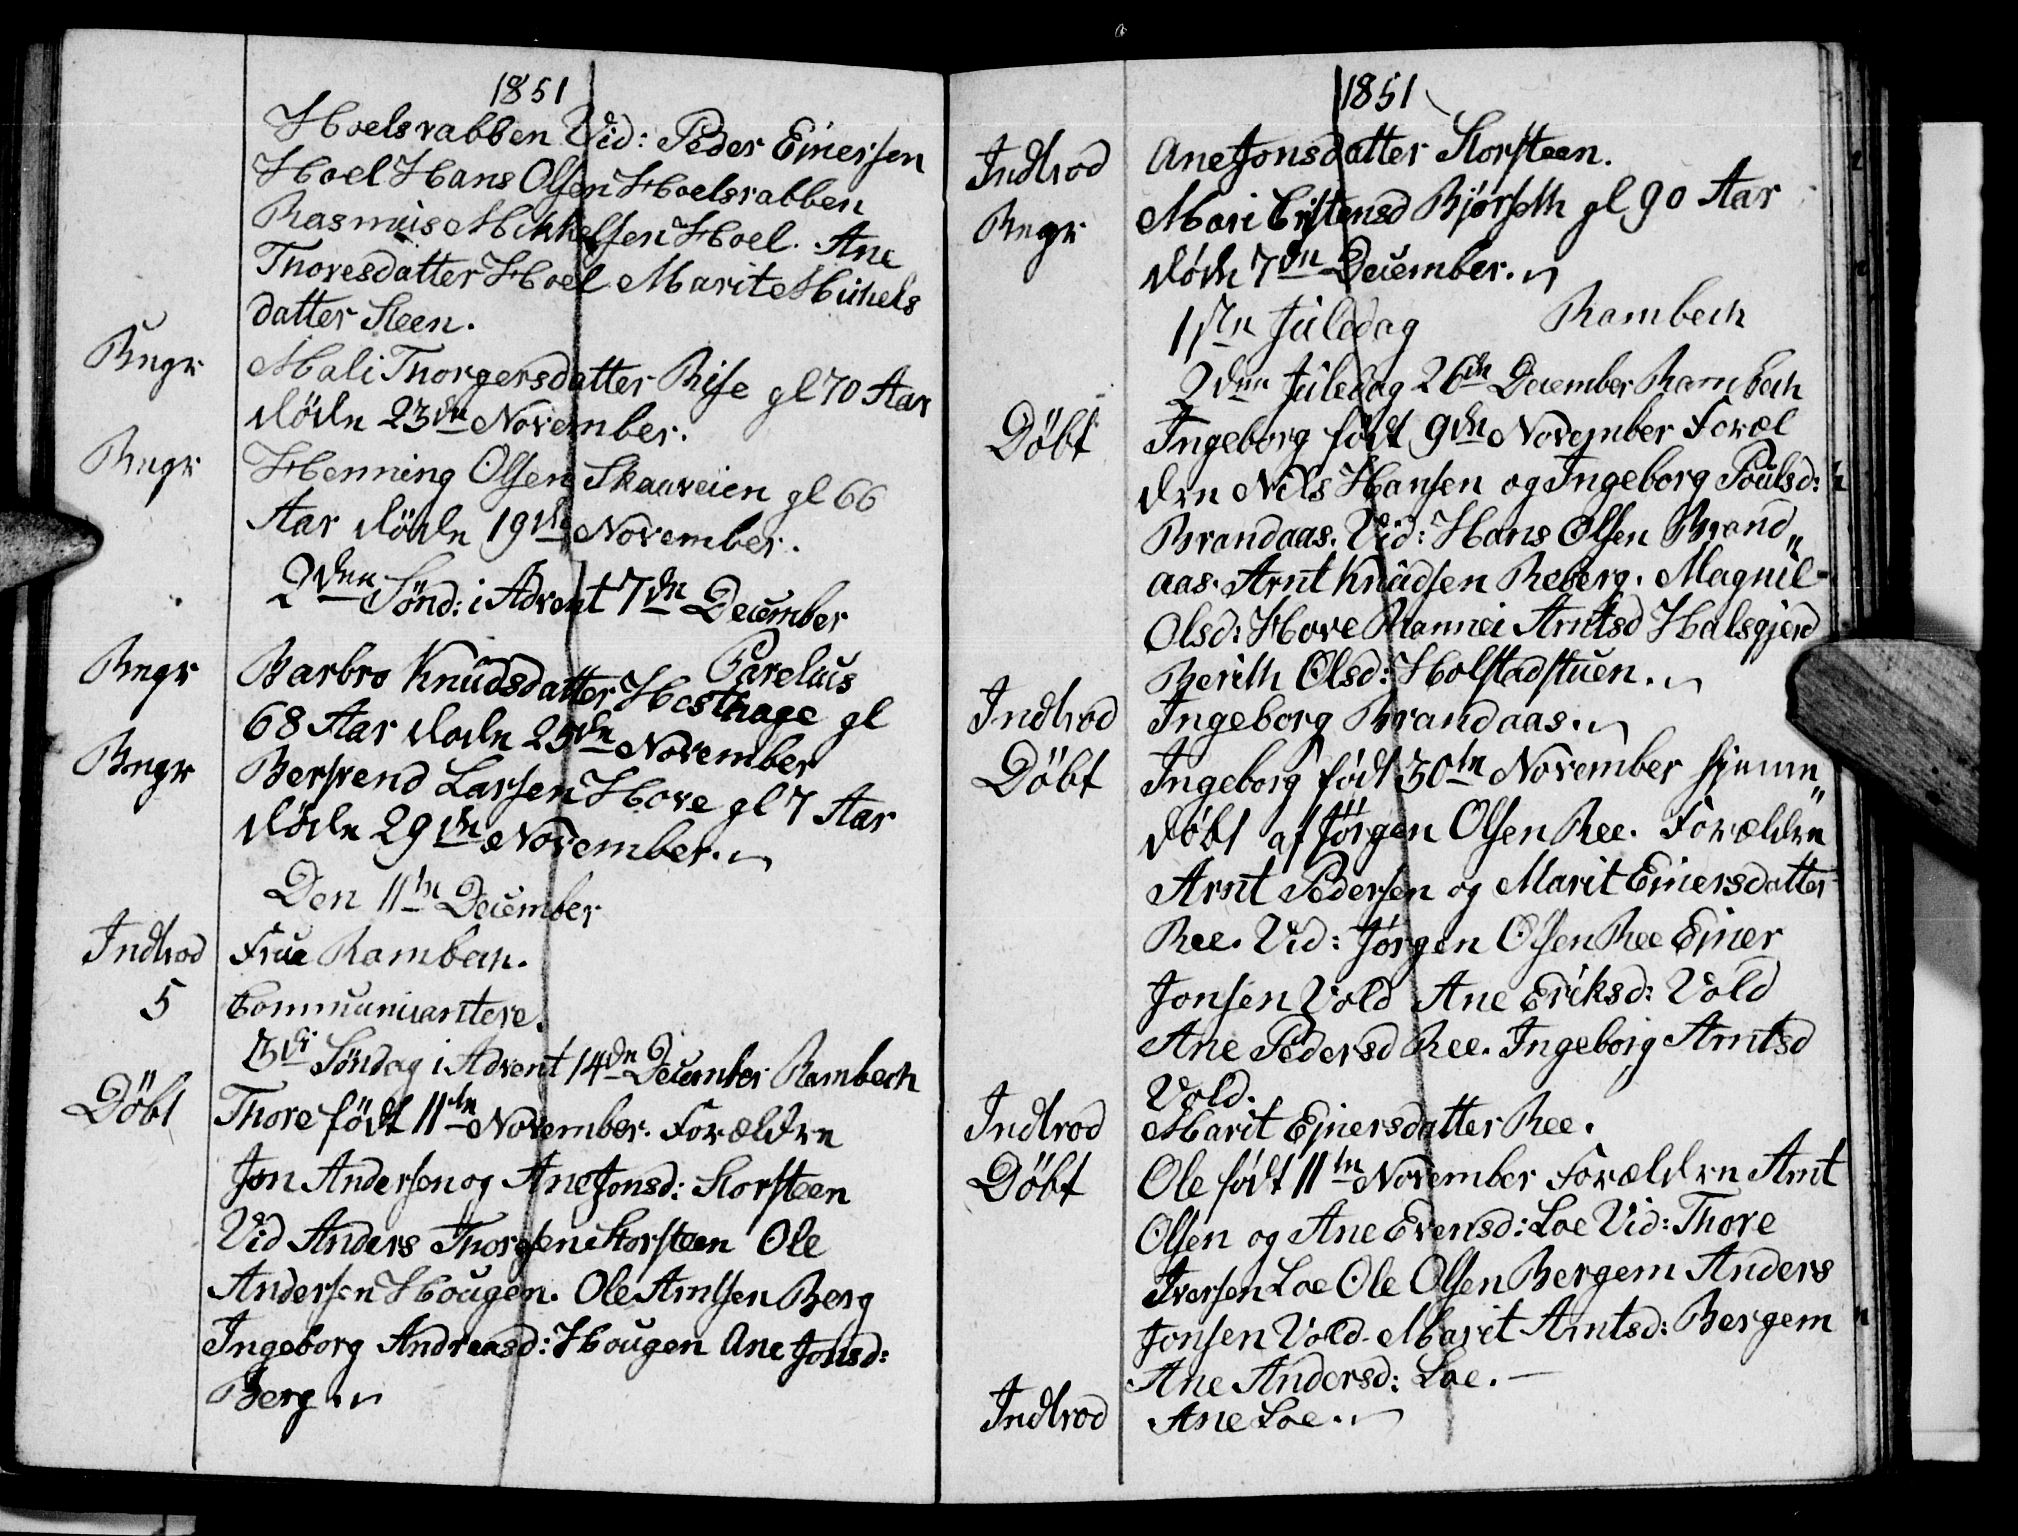 1851
Hoelsrabben Vid: Peder Einersen
Hoel Hans Olsen Hoelsrabben
Rasmus Mikkelsen Hoel. Ane
Thoresdatter Hoel Marit Michels
datter Steen.
Begr Mali Thorgersdatter Rise gl 70 Aar
döde 23de November.
Begr Henning Olsen Skaaveien gl 66
Aar döde 19de November.
2den Sönd: i Advent 7de December
Parelius
Begr Barbro Knudsdatter Hesthage gl
68 Aar döde 25de November
Begr Bersvend Larsen Hove gl 7 Aar
döde 29de November.
Den 11te December
Indlrod Frue Rambech.
5 Communicantere.
3di Söndag i Advent 14de December Rambech
Döbt Thore födt 11te November. Forældre
Jon Andersen og Ane Jonsd: Storsteen
Vid Anders Thoresen Storsteen Ole
Andersen Hougen. Ole Arntsen Berg
Ingeborg Andreasd: Hougen Ane Jonsd:
Berg.
1851
Indlrod Ane Jonsdatter Storsteen.
Begr Mari Cristensd Bjørseth gl 90 Aar
døde 7de December.
1ste Juledag Rambech
2den Juledag 26de December Rambech
Döbt Ingeborg født 9de November Foræl
dre Nils Hansen og Ingeborg Poulsd:
Brandaas. Vid: Hans Olsen Brand„
aas. Arnt Knudsen Reberg. Magnil
Olsd: Hove Rannei Arntsd Halsgjerd
Berith Olsd: Holstadstuen.
Indlrod Ingeborg Brandaas.
Döbt Ingeborg født 30te November hjemme„
döbt af Jörgen Olsen Ree. Forældre
Arnt Pedersen og Marit Einersdatter
Ree. Vid: Jørgen Olsen Ree Ejner
Jonsen Vold Ane Eriksd: Vold
Ane Pedersd Ree. Ingeborg Arntsd
Vold.
Indlrod Marit Ejnersdatter Ree.
Döbt Ole født 11te November Forældre Arnt
Olsen og Ane Evensd: Loe Vid: Thore
Iversen Loe Ole Olsen Bergem Anders
Jonsen Vold. Marit Arntsd: Bergem
Ane Andersd: Loe.
Indlrod Ane Loe.